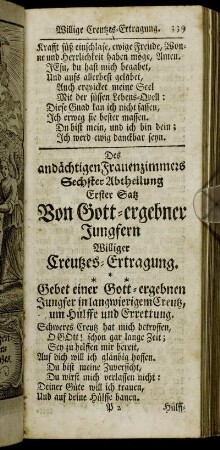 Willige Creutzes-Ertragung. 339
Krafft süß einschlafe, ewige Freude, Won-
ne und Herrlichkeit haben möge, Amen.
JEsu, du hast mich begabet,
Und aufs allerbest gelabet,
Auch erqvicket meine Seel
Mit der süssen Lebens-Qvell:
Diese Gnad kan ich nicht fassen,
Ich erweg sie bester massen.
Du bist mein, und ich bin dein;
Ich werd ewig danckbar seyn.
Des
andächtigen Frauenzimmers
Sechster Abtheilung
Erster Satz
Von Gott-ergebner
Jungfern
Williger
Creutzes-Ertragung.
* * *
Gebet einer Gott-ergebnen
Jungfer in langwierigem Creutz,
um Hülffe und Errettung.
Schweres Creutz hat mich betroffen,
O GOtt! schon gar lange Zeit;
Sey zu helffen mir bereit,
Auf dich will ich gläubig hoffen.
Du bist meine Zuversicht,
Du wirst mich verlassen nicht:
Deiner Güte will ich trauen,
Und auf deine Hülffe bauen.
P 2 Hülff-